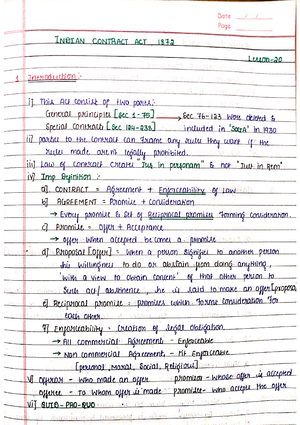 Date / /
Page
INDIAN CONTRACT ACT, 1872
Lesson-20
1 Introduction :-
i] This Act consist of two parts:
General principles [Sec 1-75] → Sec 76-123 were deleted &
Special contracts [Sec 124-238] included in "SOGA" in 1930
ii] parties to the contract can frame any rule they want if the
rules made aren't legally prohibited.
iii] Law of contract create "Jus in personam" & not "Jus in Rem"
iv] Imp Definition :-
a]. CONTRACT = Agreement + Enforceability of Law
b] AGREEMENT = Promise + Consideration
→ Every promise & Set of Reciprocal promises forming consideration.
c] Promise = Offer + Acceptance
→ Offer when accepted becomes a promise
d] Proposal [Offer] = When a person signifies to another person
his willingness to do or abstain from doing anything,
'with a view to obtain consent' of that other person to
such act/ abstinence, he is said to make an offer [proposal]
e] Reciprocal promise = promises which forms consideration for
each other.
f] Enforceability = Creation of legal obligation
→ All commercial Agreement - Enforceable
→ Non commercial Agreement - Enforceable
[personal, Moral, Social, Religious]
v] Offeror - Who made an offer promisor - Whose offer is accepted
Offeree - To whom offer is made promisee - Who accepts the offer
vi] QUID-PRO-QUO